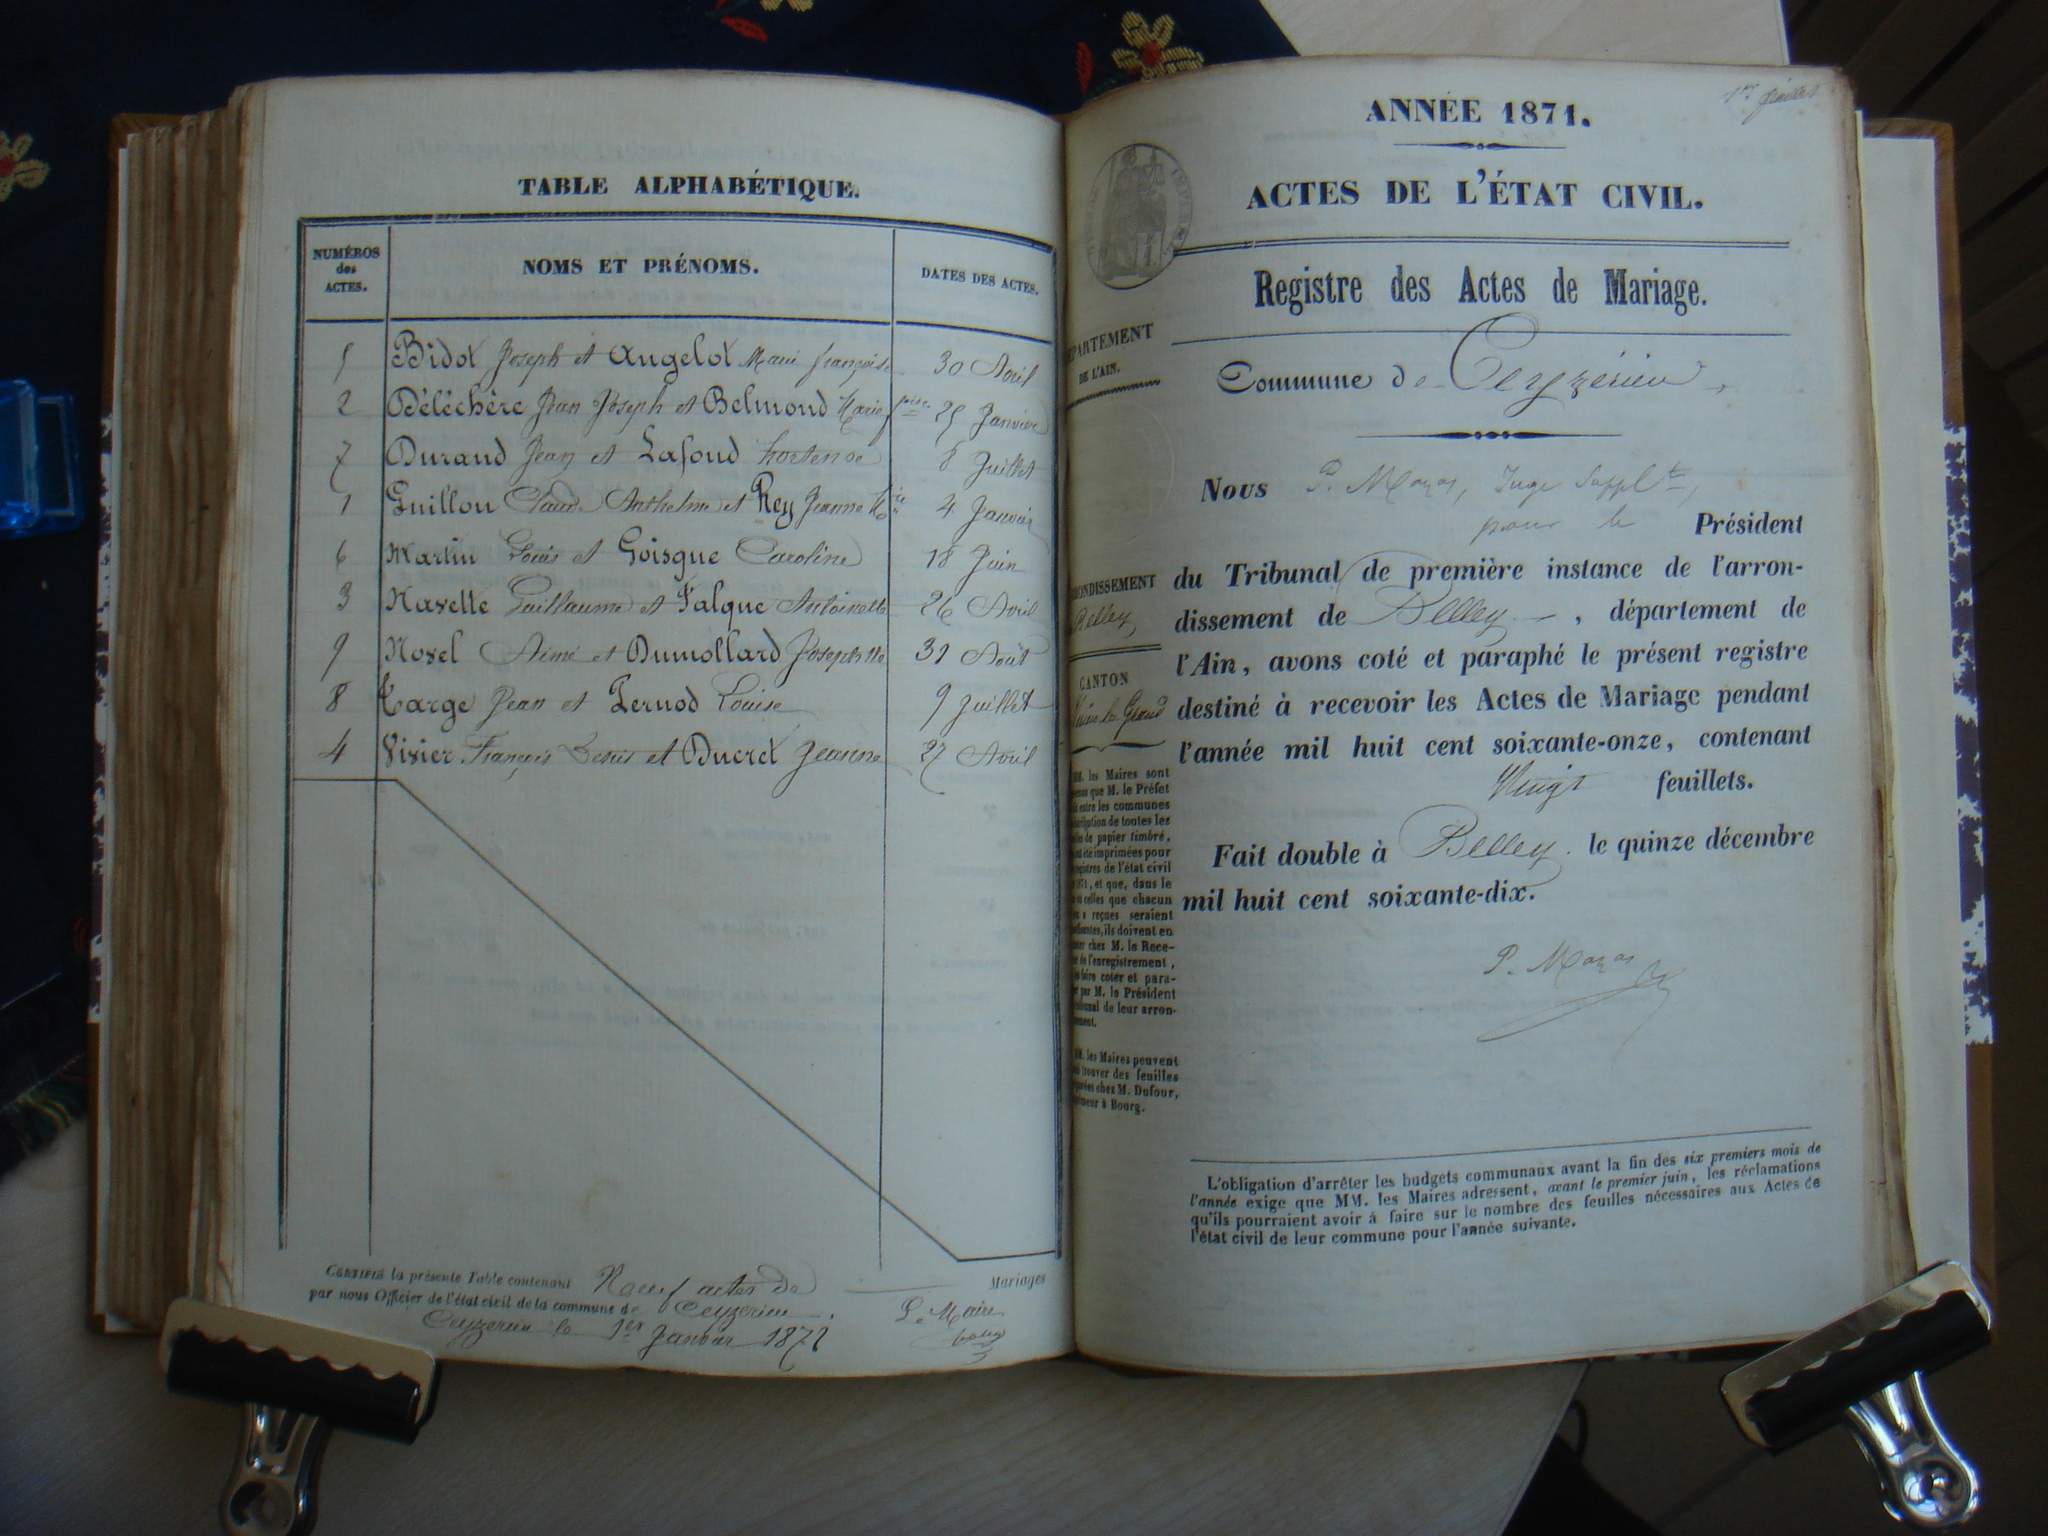 TABLE ALPHABÉTIQUE.
NUMÉROS des ACTES.
NOMS ET PRÉNOMS.
DATES DES ACTES.
5 Bidot Joseph et Angelot Marie françoise 30 Avril
2 Déléchère Jean Joseph et Belmond Marie fçoise 25 Janvier
7 Durand Jean et Lafond hortense 8 Juillet
1 Guillon Claude Anthelme et Rey Jeanne Mie 4 Janvier
6 Martin Louis et Goisque Caroline 18 Juin
3 Navette Guillaume et Falque Antoinette 26 Avril
9 Novel Aimé et Dumollard Josephtte 31 Août
8 Targe Jean et Pernod Louise 9 Juillet
4 Vivier François et Ducret Jeanne 27 Avril
CERTIFIÉ la présente Table contenant Neuf actes de Mariages
par nous Officier de l'état civil de la commune de Ceyzerieu.
Ceyzerieu le 1er Janvier 1872
Le Maire
1er feuillet
ANNÉE 1871.
ACTES DE L'ÉTAT CIVIL.
Registre des Actes de Mariage.
DÉPARTEMENT
DE L'AIN.
Commune de Ceyzérieu
Nous P. Mazas, Juge Supplt,
pour le Président
du Tribunal de première instance de l'arron-
dissement de Belley, département de
l'Ain, avons coté et paraphé le présent registre
destiné à recevoir les Actes de Mariage pendant
l'année mil huit cent soixante-onze, contenant
Vingt feuillets.
Fait double à Belley. le quinze décembre
mil huit cent soixante-dix.
P. Mazas
RONDISSEMENT
Belley
CANTON
le Grand
MM. les Maires sont
que M. le Préfet
entre les communes
de toutes les
de papier timbré,
été imprimées pour
registres de l'état civil
1871, et que, dans le
celles que chacun
reçues seraient
, ils doivent en
chez M. le Rece-
de l'enregistrement,
faire coter et para-
par M. le Président
de leur arron-
MM. les Maires peuvent
trouver des feuilles
chez M. Dufour,
à Bourg.
L'obligation d'arrêter les budgets communaux avant la fin des six premiers mois de
l'année exige que MM. les Maires adressent, avant le premier juin, les réclamations
qu'ils pourraient avoir à faire sur le nombre des feuilles nécessaires aux Actes de
l'état civil de leur commune pour l'année suivante.